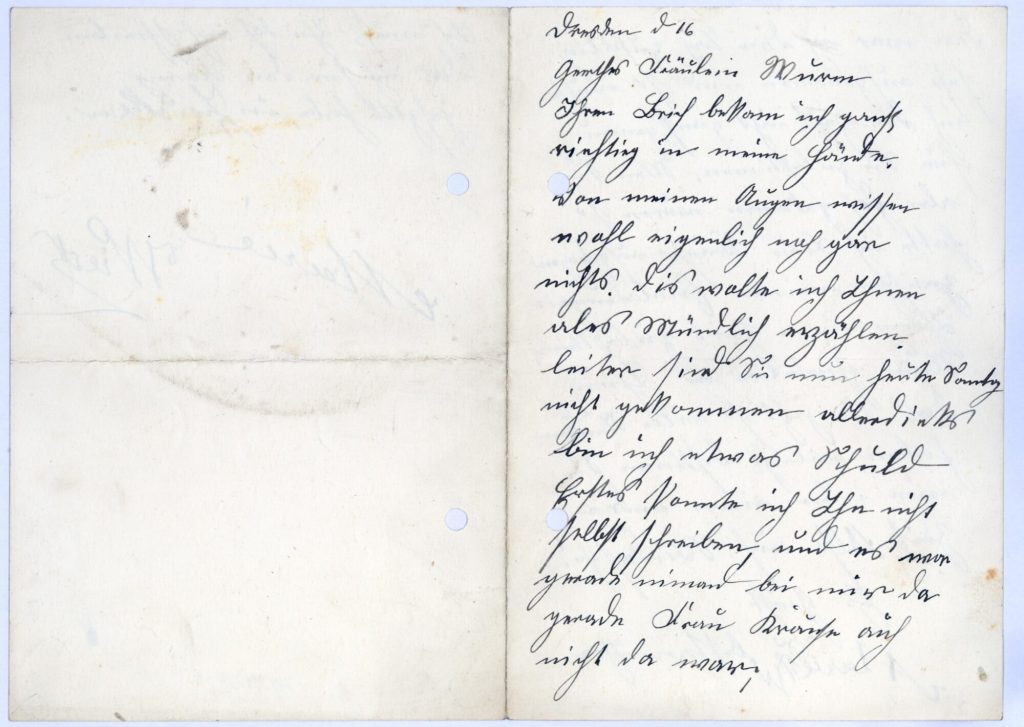 Dresden d 16
Gerthes Fräulein Wurm
Ihren Brief bekam ich ganß
richtieg in meine Hände.
Von meinen Augen wissen
wohl eigenlich noh gar
nichts. Dis wolte ich Ihnen
ales Mündlich erzählen.
leiter sind Sie nun heute Sontag
nicht gekommen allerdieks
bin ich etwas Schuld
Erstes konnte ich Ihn nicht
selbst schreiben, und es war
gerade nimand bei mir da
gerade Frau Krause auch
nicht da war,